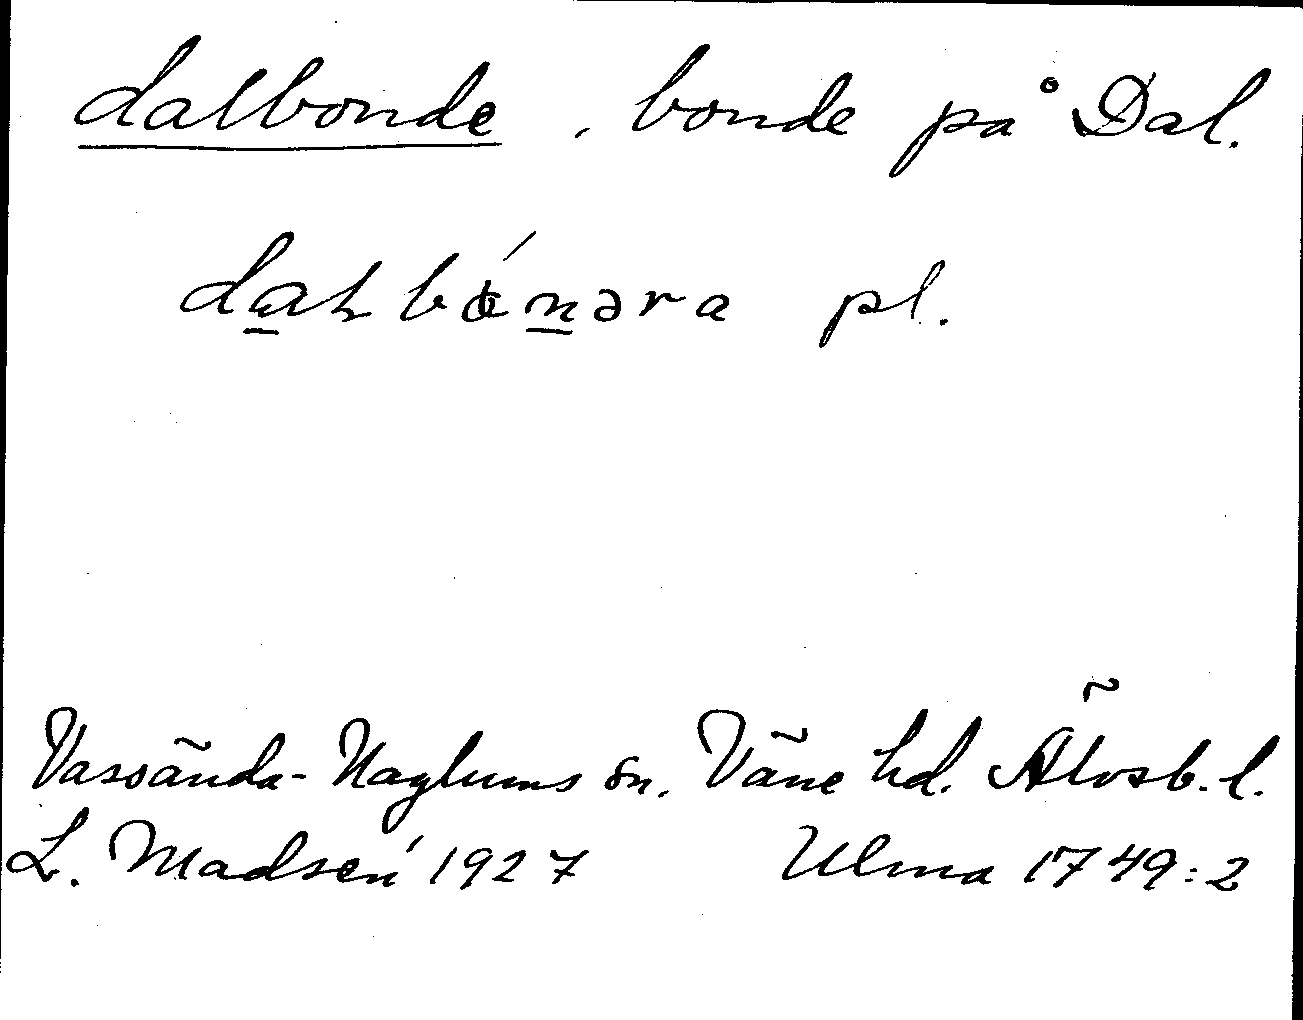 dalbonde, bonde på Dal.
pl.
Vassända-Naglums sn. Väne hd. Älvsb. l.
L. Madsén 1927 Ulma 1749:2